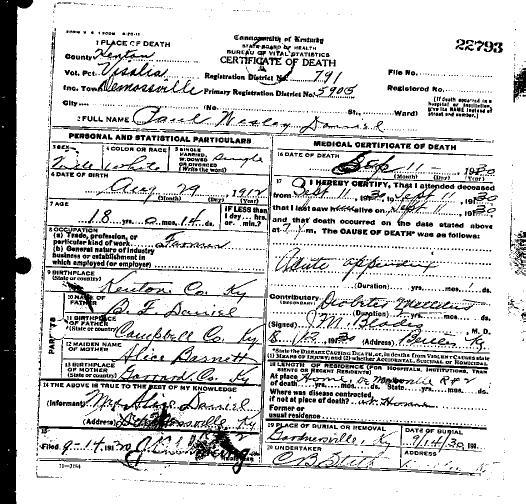 1 PLACE OF DEATH
County Kenton
Vol. Pct. Visalia
Inc. Town Demossville
City
Commonwealth of Kentucky
STATE BOARD OF HEALTH
BUREAU OF VITAL STATISTICS
CERTIFICATE OF DEATH
22793
Registration District No. 791
File No.
Primary Registration District No. 5905
Registered No.
(No. St., Ward)
(If death occurred in a hospital or institution, give its NAME instead of street and number.)
2 FULL NAME Paul Wesley Daniel
PERSONAL AND STATISTICAL PARTICULARS
3 SEX
4 COLOR OR RACE White
5 SINGLE MARRIED, WIDOWED OR DIVORCED (Write the word) Single
6 DATE OF BIRTH
Aug 29 1912
(Month) (Day) (Year)
7 AGE
18 yrs. 0 mos. 14 ds.
IF LESS than 1 day... hrs. or... min.?
8 OCCUPATION
(a) Trade, profession, or particular kind of work Farmer
(b) General nature of industry business or establishment in which employed (or employer)
9 BIRTHPLACE
(State or country) Kenton Co. Ky
10 NAME OF FATHER B. F. Daniel
11 BIRTHPLACE OF FATHER
(State or country) Campbell Co. Ky
12 MAIDEN NAME OF MOTHER Alice Barnett
13 BIRTHPLACE OF MOTHER
(State or country) Co. Ky
14 THE ABOVE IS TRUE TO THE BEST OF MY KNOWLEDGE
(Informant) Mrs Alice Daniel
(Address) Demossville, Ky
15
Filed 9-14, 1930
MEDICAL CERTIFICATE OF DEATH
16 DATE OF DEATH
Sep 11 1930
(Month) (Day) (Year)
17 I HEREBY CERTIFY, That I attended deceased
from Sept 11, 1930, to Sept 11, 1930
that I last saw alive on Sept 11, 1930
and that death occurred on the date stated above
at 7 m. The CAUSE OF DEATH was as follows:
Acute
(Duration) yrs. mos. ds.
Contributory Diabetes
(SECONDARY)
(Duration) yrs. mos. ds.
(Signed) J M. Blades M. D.
(Address) Butler Ky
*State the DISEASE CAUSING DEATH, or, in deaths from VIOLENT CAUSES state (1) MEANS OF INJURY; and (2) whether ACCIDENTAL, SUICIDAL or HOMICIDAL
18 LENGTH OF RESIDENCE (FOR HOSPITALS, INSTITUTIONS, TRANSIENTS OR RECENT RESIDENTS)
At place of death Home R # 2
Where was disease contracted,
if not at place of death? at Home
Former or usual residence
19 PLACE OF BURIAL OR REMOVAL Gardnersville, Ky
DATE OF BURIAL 9/14/30
20 UNDERTAKER
C B Stith
ADDRESS